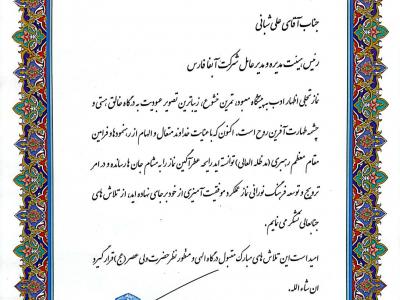 جناب آقای علی شبانی
رئیس هیئت مدیره و مدیر عامل شرکت آبفا فارس
نماز تجلی اظهار ادب به پیشگاه معبود، تمرین خشوع، زیباترین تصویر عبودیت به درگاه خالق هستی و
چشمه طهارت آفرین روح است. اکنون که با عنایت خداوند متعال و الهام از رهنمودها و فرامین
مقام معظم رهبری (مد ظله العالی) توانسته اید رایحه عطرآگین نماز را به مشام جان ها رسانده و در امر
ترویج و توسعه فرهنگ نورانی نماز عملکرد موفقیت آمیزی از خود بر جای نهاده اید، از تلاش های
جنابعالی تشکر می نمایم.
امید است این تلاش های مبارک مقبول درگاه الهی و منظور نظر حضرت ولی عصر (عج) قرار گیرد
ان شاء الله.